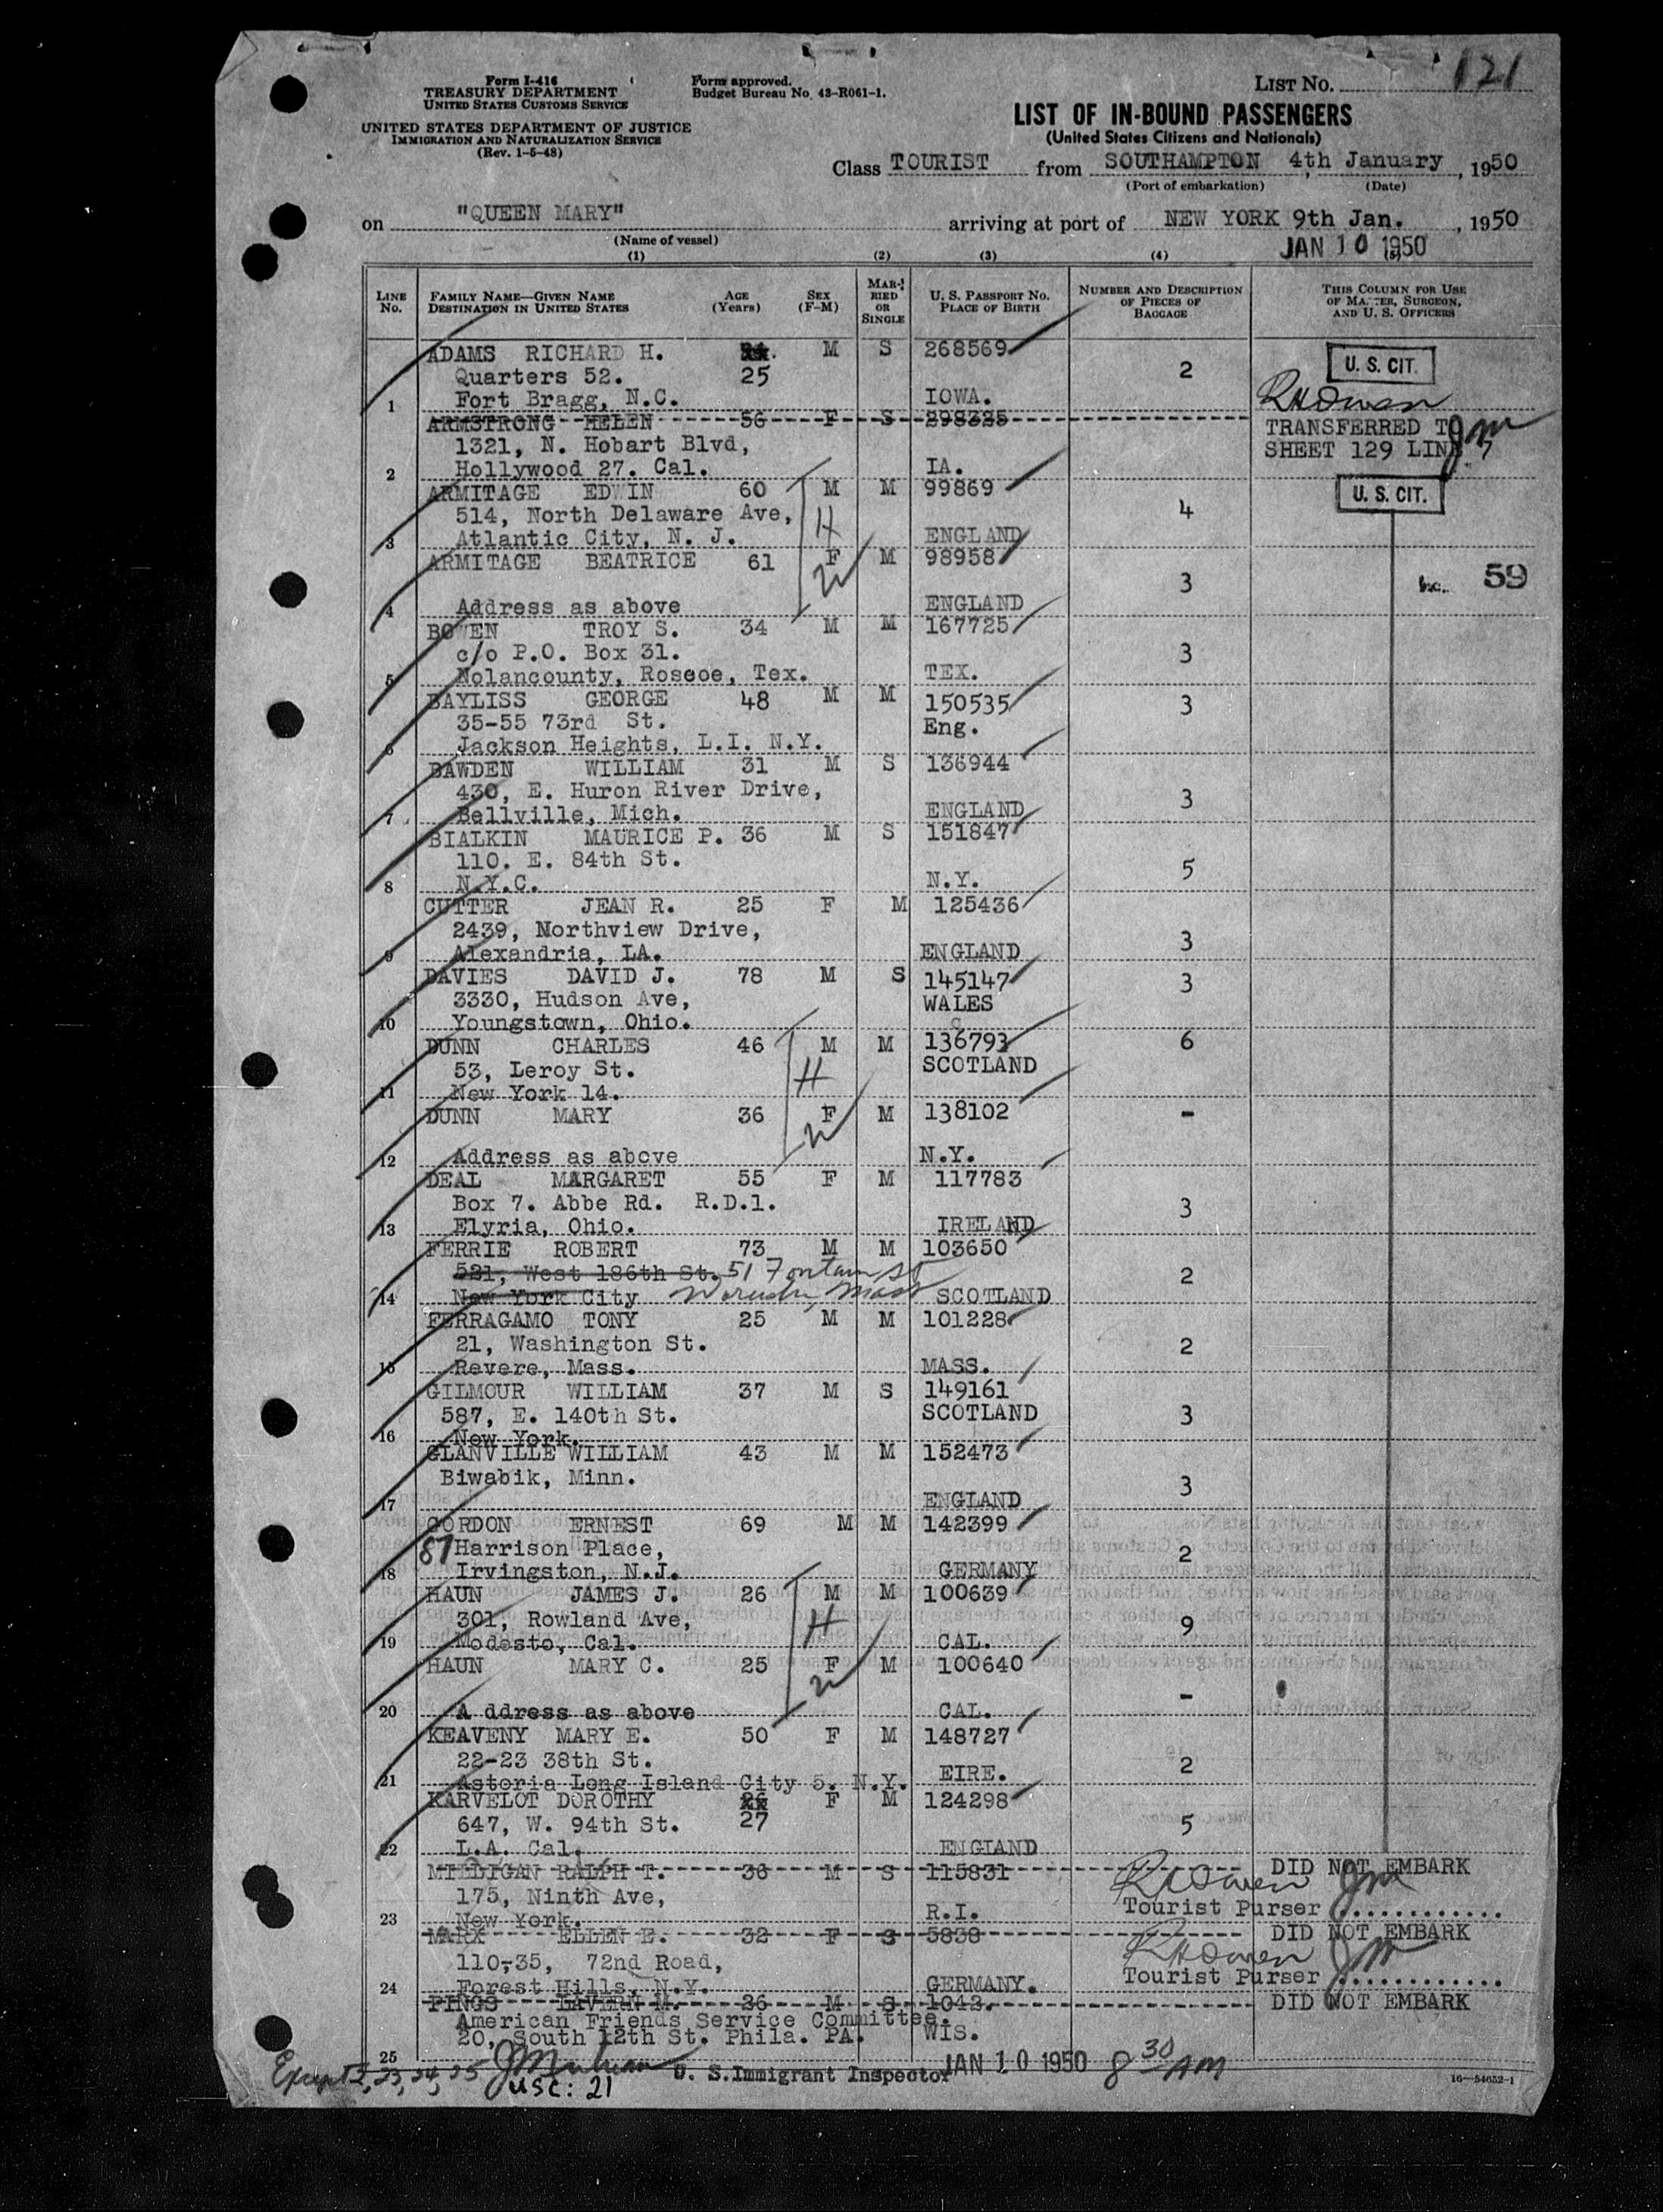 121
Form I-416
TREASURY DEPARTMENT
UNITED STATES CUSTOMS SERVICE
UNITED STATES DEPARTMENT OF JUSTICE
IMMIGRATION AND NATURALIZATION SERVICE
(Rev. 1-5-48)
Form approved.
Budget Bureau No. 43-R061-1.
LIST NO.
LIST OF IN-BOUND PASSENGERS
(United States Citizens and Nationals)
Class TOURIST from SOUTHAMPTON 4th January, 1950
(Port of embarkation) (Date)
on "QUEEN MARY" arriving at port of NEW YORK 9th Jan. , 1950
(Name of vessel) JAN 10 1950
(1) (2) (3) (4) (5)
LINE NO. FAMILY NAME—GIVEN NAME DESTINATION IN UNITED STATES AGE (Years) SEX (F-M) MARRIED OR SINGLE U. S. PASSPORT NO. PLACE OF BIRTH NUMBER AND DESCRIPTION OF PIECES OF BAGGAGE THIS COLUMN FOR USE OF MASTER, SURGEON, AND U. S. OFFICERS
ADAMS RICHARD H. M S 268569 U. S. CIT.
Quarters 52. 25 2
1 Fort Bragg, N.C. IOWA. RHOwen
ARMSTRONG HELEN 56 F S 298325 TRANSFERRED TO
1321, N. Hobart Blvd, SHEET 129 LINE 7 JM
2 Hollywood 27. Cal. IA.
ARMITAGE EDWIN 60 M M 99869 U. S. CIT.
514, North Delaware Ave, H 4
3 Atlantic City, N. J. ENGLAND
ARMITAGE BEATRICE 61 F M 98958
W 3 59
4 Address as above ENGLAND
BOWEN TROY S. 34 M M 167725
c/o P.O. Box 31. 3
5 Nolancounty, Roscoe, Tex. TEX.
BAYLISS GEORGE 48 M M 150535 3
35-55 73rd St. Eng.
6 Jackson Heights, L.I. N.Y.
BAWDEN WILLIAM 31 M S 136944
430, E. Huron River Drive, 3
7 Bellville, Mich. ENGLAND
BIALKIN MAURICE P. 36 M S 151847
110. E. 84th St. 5
8 N.Y.C. N.Y.
CUTTER JEAN R. 25 F M 125436
2439, Northview Drive, 3
9 Alexandria, LA. ENGLAND
DAVIES DAVID J. 78 M S 145147 3
3330, Hudson Ave, WALES
10 Youngstown, Ohio.
DUNN CHARLES 46 M M 136793 6
53, Leroy St. H SCOTLAND
11 New York 14.
DUNN MARY 36 F M 138102 -
W
12 Address as above N.Y.
DEAL MARGARET 55 F M 117783
Box 7. Abbe Rd. R.D.1. 3
13 Elyria, Ohio. IRELAND
FERRIE ROBERT 73 M M 103650
521, West 186th St. 51 St 2
14 New York City Mass SCOTLAND
FERRAGAMO TONY 25 M M 101228
21, Washington St. 2
15 Revere, Mass. MASS.
GILMOUR WILLIAM 37 M S 149161
587, E. 140th St. SCOTLAND 3
16 New York.
GLANVILLE WILLIAM 43 M M 152473
Biwabik, Minn. 3
17 ENGLAND
GORDON ERNEST 69 M M 142399
87 Harrison Place, 2
18 Irvingston, N.J. GERMANY
HAUN JAMES J. 26 M M 100639
301, Rowland Ave, H 9
19 Modesto, Cal. CAL.
HAUN MARY C. 25 F M 100640
W -
20 A ddress as above CAL.
KEAVENY MARY E. 50 F M 148727
22-23 38th St. 2
21 Astoria Long Island City 5. N.Y. EIRE.
KARVELOT DOROTHY F M 124298
647, W. 94th St. 27 5
22 L.A. Cal. ENGLAND
MILLIGAN RALPH T. 36 M S 115831 DID NOT EMBARK
175, Ninth Ave, RHOwen JM
23 New York. R.I. Tourist Purser
MARX ELLEN E. 32 F S 5838 DID NOT EMBARK
110-35, 72nd Road, RHOwen JM
24 Forest Hills, N.Y. GERMANY. Tourist Purser
PINGS LAVERN M. 26 M S 1042. DID NOT EMBARK
American Friends Service Committee.
20, South 12th St. Phila. PA. WIS.
25
Except 2, 23, 24, 25 U. S. Immigrant Inspector JAN 10 1950 8 30 AM
USC: 21
16—54652-1